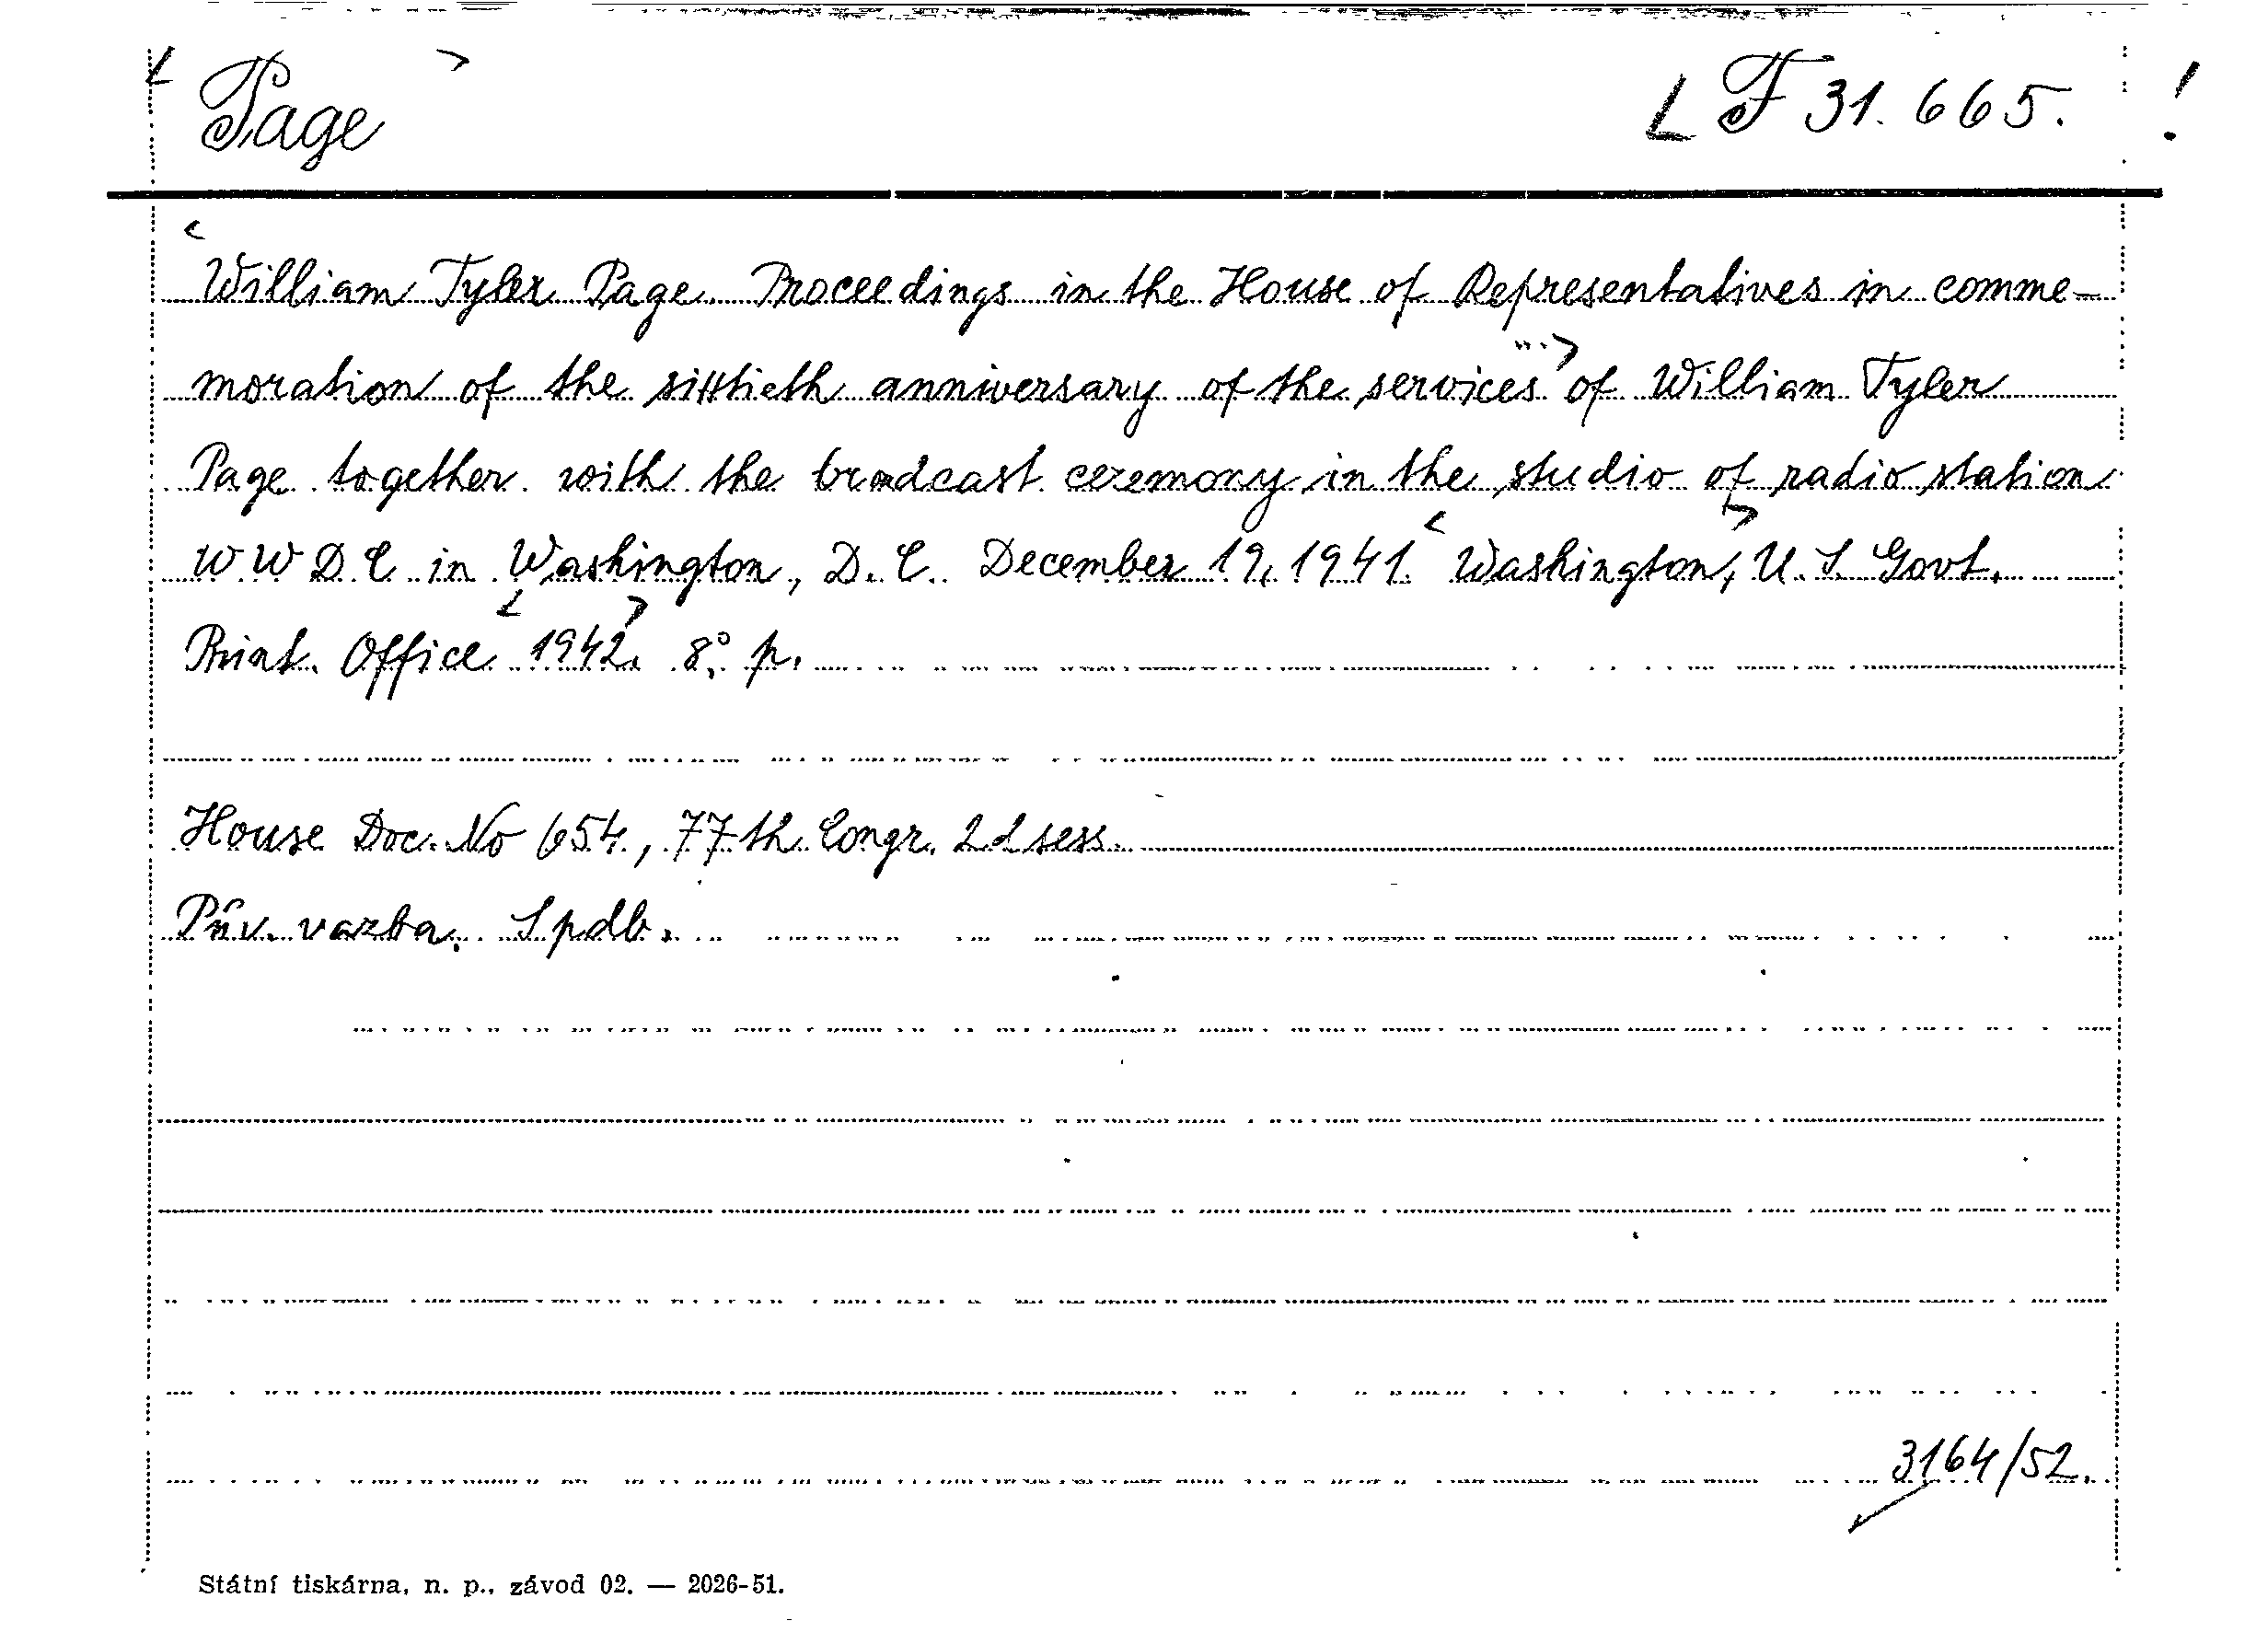 < Page > < F 31.665. !
< William Tyler Page. Proceedings in the House of Representatives in comme-
moration of the sixtieth anniversary of the services ...> of William Tyler
Page together with the broadcast ceremony in the studio of radio station
W W D C in Washington, D. C. December 19, 1941. < Washington, > U. S. Govt.
Print. Office < 1942. > 8°. p.
House Doc. No 654., 77th Congr. 2d sess.
Pův. vazba. Spdb.
3164/52.
Státní tiskárna, n. p., závod 02. — 2026-51.